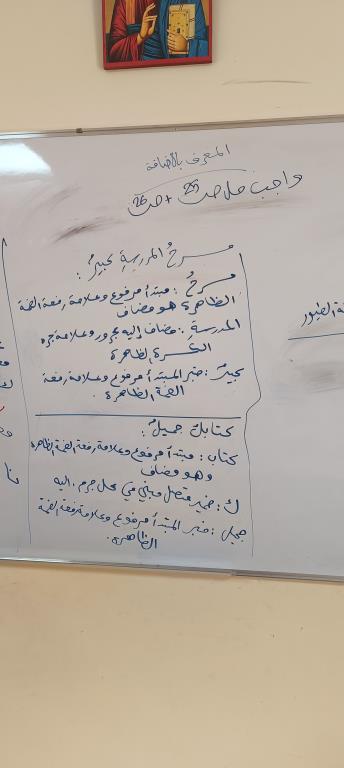 المعرف بالأضافة
واجب حل ص25 + ص26
مسرحُ المدرسةِ كبيرٌ:
مسرحُ: مبتدأ مرفوع وعلامة رفعة الضمة
الظاهرة هو مضاف
المدرسةِ: مضاف إليه مجرور وعلامة جره
الكسرة الظاهرة
كبيرٌ: خبر المبتدأ مرفوع وعلامة رفعة
الضمة الظاهرة.
كتابك جميلٌ:
كتاب: مبتدأ مرفوع وعلامة رفعة الضمة الظاهرة
وهو مضاف
ك: ضمير متصل مبني في محل جر م. اليه
جميل: خبر المبتدأ مرفوع وعلامة رفعة الضمة
الظاهرة.
الطيور